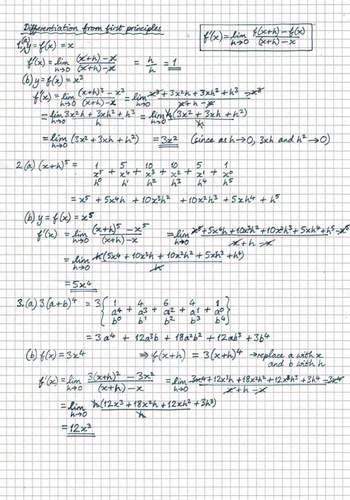 Differentiation from first principles
f'(x) = lim h→0 f(x+h) - f(x) / (x+h) - x
1.(a) y = f(x) = x
f'(x) = lim h→0 (x+h) - x / (x+h) - x = h/h = 1
(b) y = f(x) = x³
f'(x) = lim h→0 (x+h)³ - x³ / (x+h) - x = lim h→0 x³ + 3x²h + 3xh² + h³ - x³ / x + h - x
= lim h→0 3x²h + 3xh² + h³ / h = lim h→0 h(3x² + 3xh + h²) / h
= lim h→0 (3x² + 3xh + h²) = 3x² (since as h→0, 3xh and h² → 0)
2.(a) (x+h)⁵ = 1 x⁵ h⁰ + 5 x⁴ h¹ + 10 x³ h² + 10 x² h³ + 5 x¹ h⁴ + 1 x⁰ h⁵
= x⁵ + 5x⁴h + 10x³h² + 10x²h³ + 5xh⁴ + h⁵
(b) y = f(x) = x⁵
f'(x) = lim h→0 (x+h)⁵ - x⁵ / (x+h) - x = lim h→0 x⁵ + 5x⁴h + 10x³h² + 10x²h³ + 5xh⁴ + h⁵ - x⁵ / x + h - x
= lim h→0 h(5x⁴ + 10x³h + 10x²h² + 5xh³ + h⁴) / h
= 5x⁴
3.(a) 3(a+b)⁴ = 3{ 1 a⁴ b⁰ + 4 a³ b¹ + 6 a² b² + 4 a¹ b³ + 1 a⁰ b⁴ }
= 3a⁴ + 12a³b + 18a²b² + 12ab³ + 3b⁴
(b) f(x) = 3x⁴ ⇒ f(x+h) = 3(x+h)⁴ → replace a with x
and b with h
f'(x) = lim h→0 3(x+h)⁴ - 3x⁴ / (x+h) - x = lim h→0 3x⁴ + 12x³h + 18x²h² + 12xh³ + 3h⁴ - 3x⁴ / x + h - x
= lim h→0 h(12x³ + 18x²h + 12xh² + 3h³) / h
= 12x³